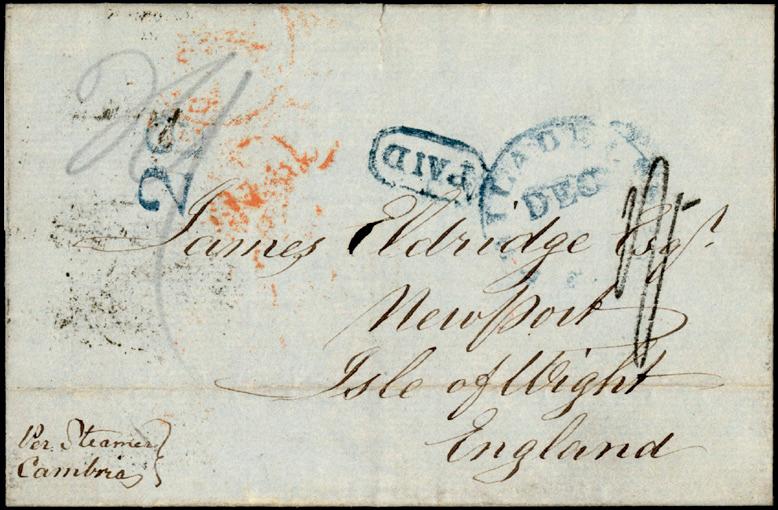 PAID
DEC
James Eldridge Esqr
Newport
Isle of Wight
England
Per Steamer
Cambria